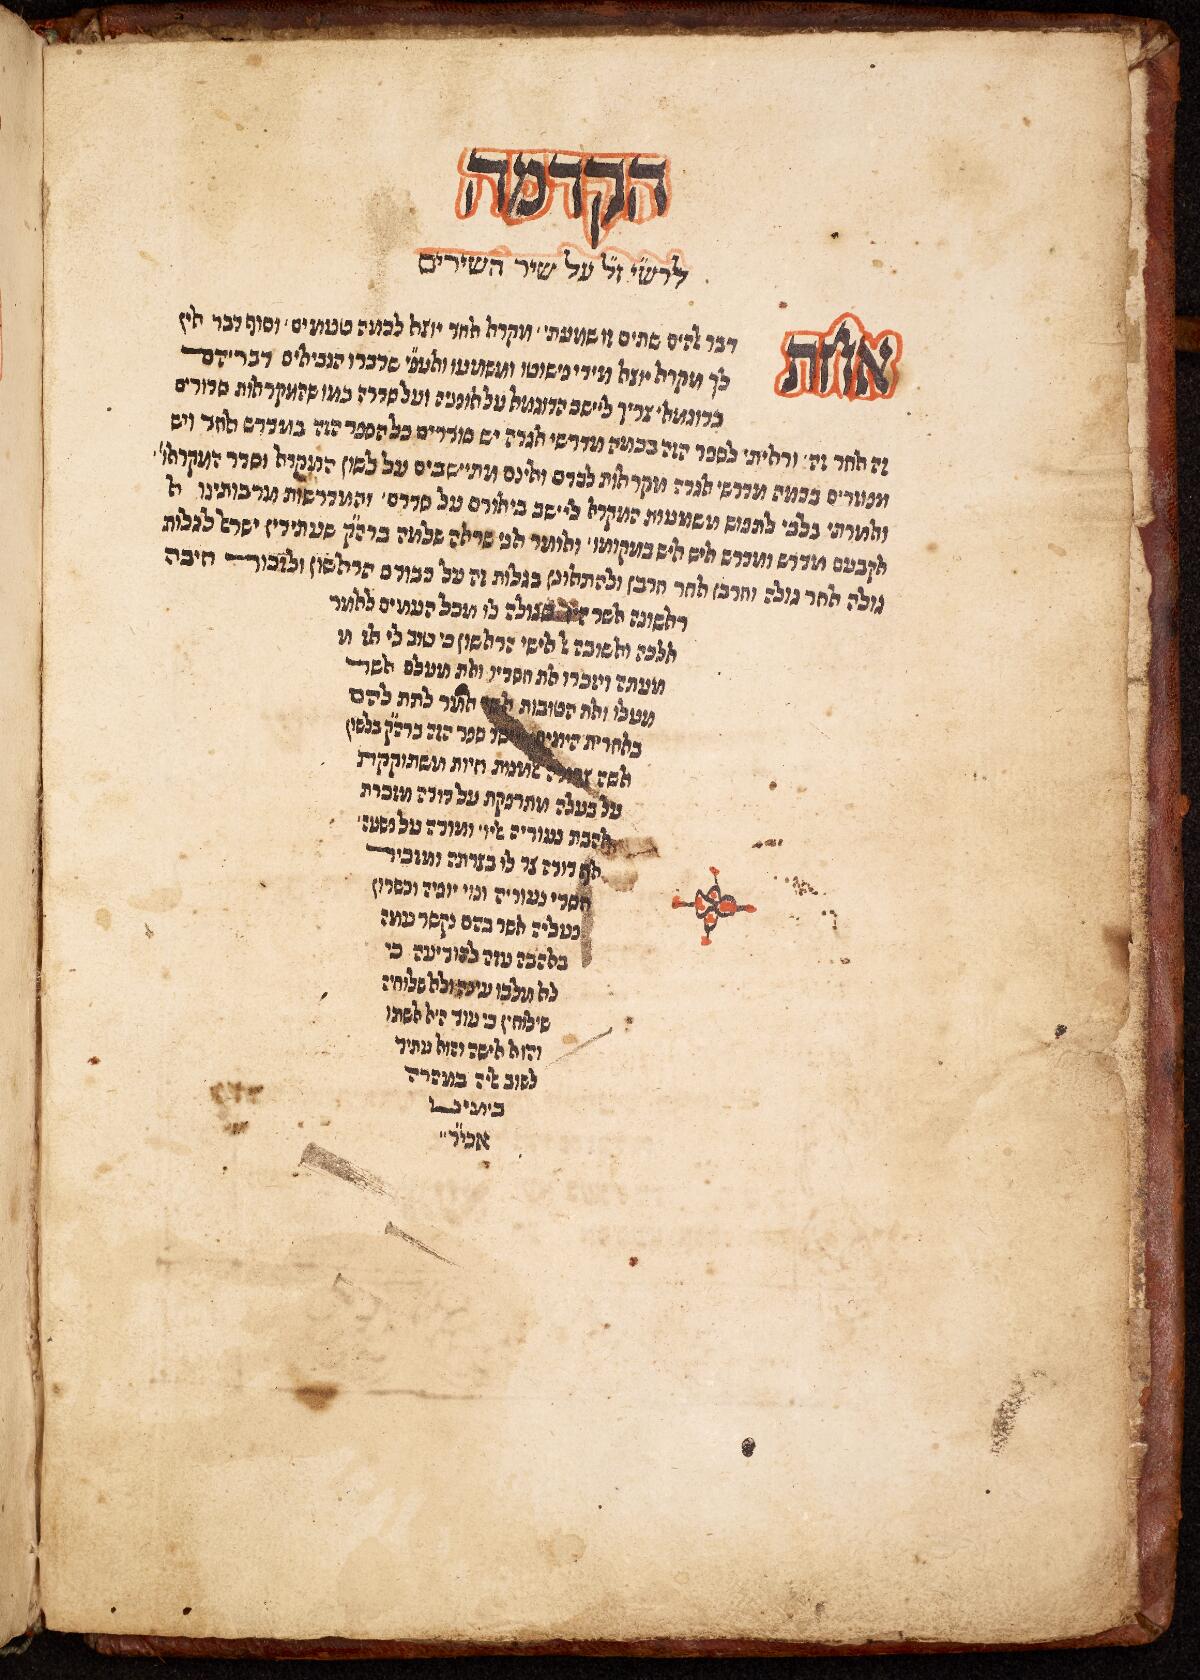 הקדמה
לרש״י ז״ל על שיר השירים
אחת
דבר אלהים שתים זו שמעתי׳ מקרא אחד יוצא לכמה טעמים׳ וסוף דבר אין
לך מקרא יוצא מידי פשוטו ומשמעו ואעפ״י שדברו הנביאים דבריהם
בדוגמא׳ צריך ליישב הדוגמא על אופניה ועל סדרה כמו שהמקראות סדורים
זה אחר זה׳ וראיתי לספר הזה בכמה מדרשי אגדה יש סודרים כל הספר הזה במדרש אחד ויש
מפוזרים בכמה מדרשי אגדה מקראות לבדם ואינם מתיישבים על לשון המקרא וסדר המקראו׳
ואמרתי בלבי לתפוש משמעות המקרא ליישב ביאורם על סדרם׳ והמדרשות מרבותינו א
אקבעם מדרש ומדרש איש איש במקומו׳ ואומר אני שראה שלמה ברה״ק שעתידין ישראל לגלות
גולה אחר גולה וחרבן אחר חרבן ולהתאונן בגלות זה על כבודם הראשון ולזכור חיבה
ראשונה אשר היו סגולה לו מכל העמים לאמר
אלכה ואשובה אל אישי הראשון כי טוב לי אז מ
מעתה ויזכרו את חסדיו ואת מעלם אשר
מעלו ואת הטובות אשר אמר לתת להם
באחרית הימים ויסד ספר הזה ברה״ק בלשון
אשה צרורה אלמנות חיות משתוקקת
על בעלה מתרפקת על דודה מזכרת
אהבת נעוריה אליו׳ ומודה על פשעה׳
אף דודה צר לו בצרתה ומזכיר
חסדי נעוריה ונוי יופיה וכשרון
פעליה אשר בהם נקשר עמה
באהבה עזה להודיעה כי
לא מלבו עינה ולא שלוחיה
שילוחין כי עוד היא אשתו
והוא אישה והוא עתיד
לשוב אליה במהרה
בימינו
אכי״ר